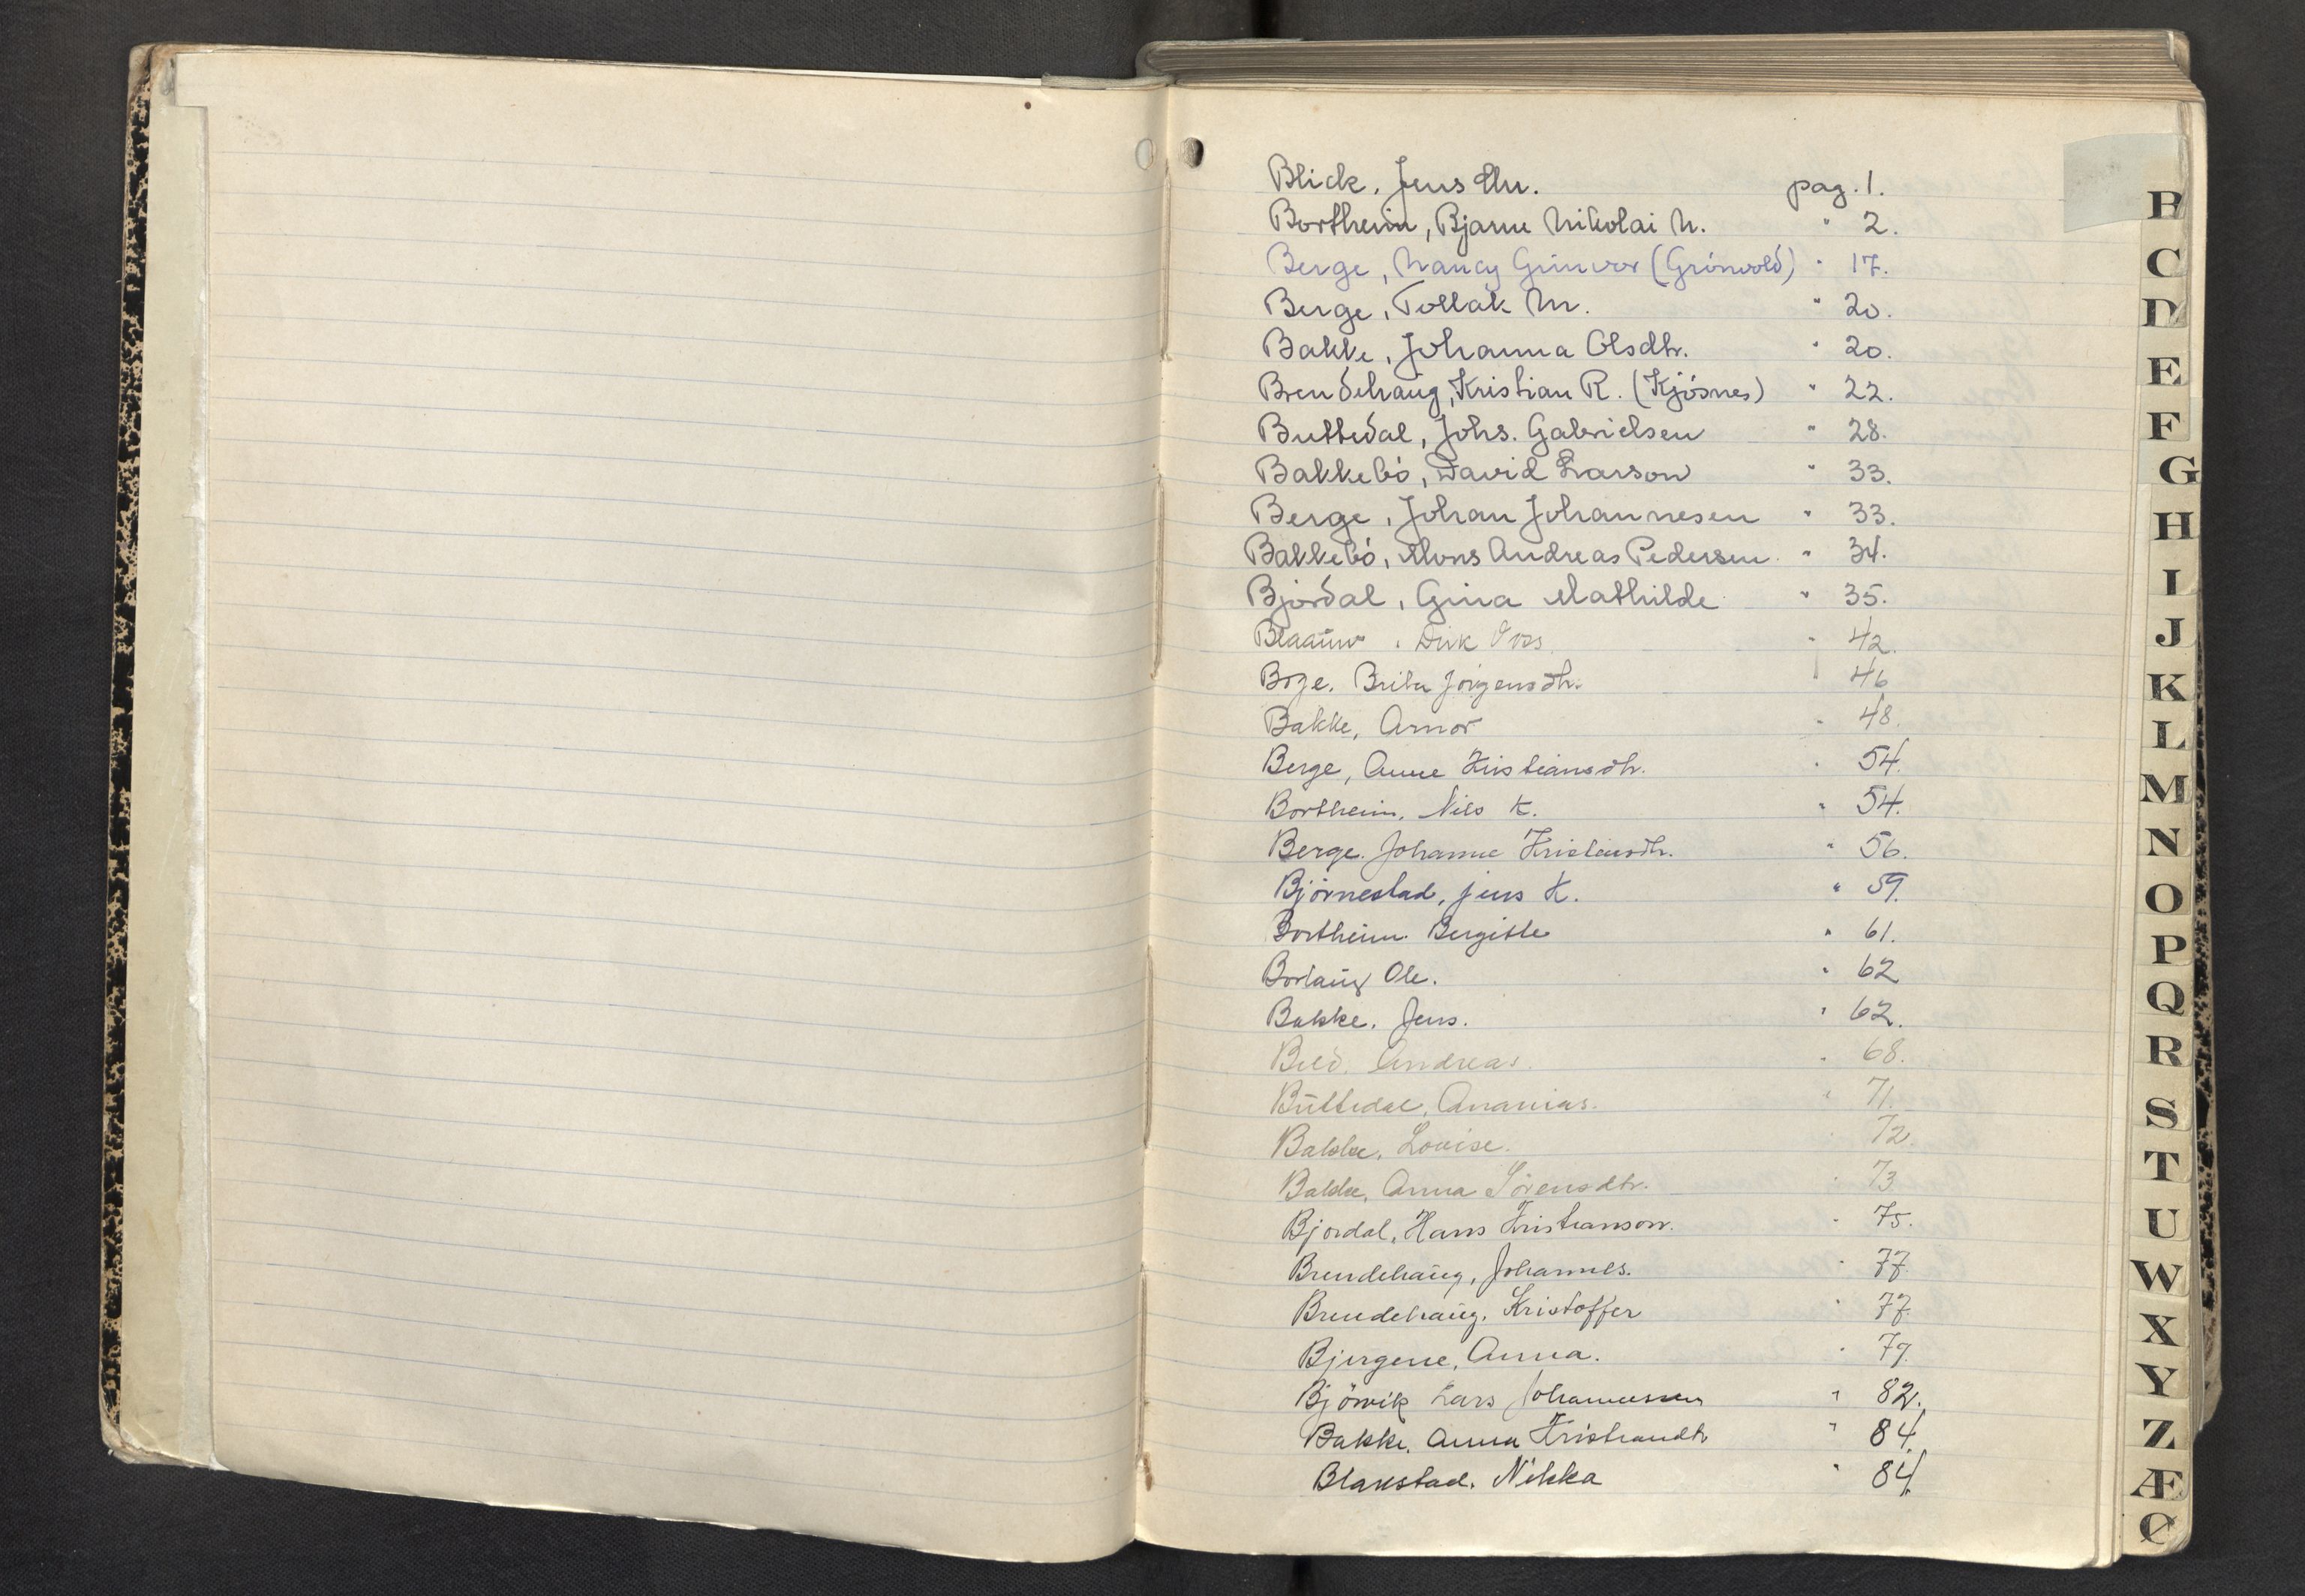 Blick, Jens Chr. pag. 1.
Bortheim, Bjarne Nikolai N. " 2.
Berge, Nancy Gunvor (Grónvold) " 17.
Berge, Tollak M. " 20.
Bakke, Johanna Olsdtr. " 20.
Brendehaug, Kristian R. (Kjósnes) " 22.
Buttedal, Johs. Gabrielsen " 28.
Bakkebó, David Larson " 33.
Berge, Johan Johannesen " 33.
Bakkebó, Mons Andreas Pedersen " 34.
Bjordal, Gina Mathilde " 35.
Blaauw, Dirk " 42.
Boge, Brita Jörgensdtr. " 46
Bakke, Arnor " 48.
Berge, Anne Kristiansdtr. " 54.
Bortheim, Nils K. " 54.
Berge. Johanne Kristensdtr. " 56.
Björnestad, Jens K. " 59.
Bortheim. Bergitte " 61.
Borlaug Ole. " 62
Bakke. Jens. " 62.
Andreas. " 68.
Buttedal, Ananias. " 71.
Bakke, Lovise. " 72.
Bakke, Anna Sörensdtr. " 73
Bjordal, Hans Kristianson. " 75.
Brendehaug, Johannes. " 77.
Brendehaug, Kristoffer " 77.
Bjergene, Anna. " 79.
Björvik Lars Johannessen " 82.
Bakke. Anna Kristiandtr " 84.
Blakstad. Nikka " 84.
B
C
D
E
F
G
H
I
J
K
L
M
N
O
P
Q
R
S
T
U
W
X
Y
Z
Æ
Ø